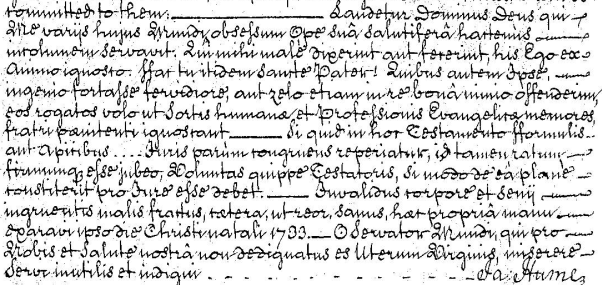 committed to them. ——— Laudetur Dominus Deus qui
Me varijs hujus Mundi obsessum Ope suâ salutiferâ hactenus
incolumem servavit. Qui mihi male dixerint aut fecerint, his Ego ex
Animo ignosco. ffac tu itidem sancte Pater! Quibus autem Ipse,
ingenio fortasse fervidiore, aut zelo etiam in re bonâ nimio offenderim,
eos rogatos volo ut Sortis humanæ et Professionis Evangelicæ memores,
fratri pœnitenti ignoscant ——— Si quid in hoc Testamento fformulis
aut Apicibus .... Juris parum congruens reperiatur, id tamen ratum
firmumq esse jubeo, Voluntas quippe Testatoris, si modo de eâ plane
constiterit pro Jure esse debet. ——— Invalidus corpore et senij
ingruentis malis fractus, cætera, ut reor, sanus, hæc propriâ manu
exaravi ipso die Christi natali 1733 — O Servator Mundi, qui pro
Nobis et Salute nostrâ non dedignatus es Uterum Virginis, miserere
Servi inutilis et indigni . . . . . . . . . . Ja Hume